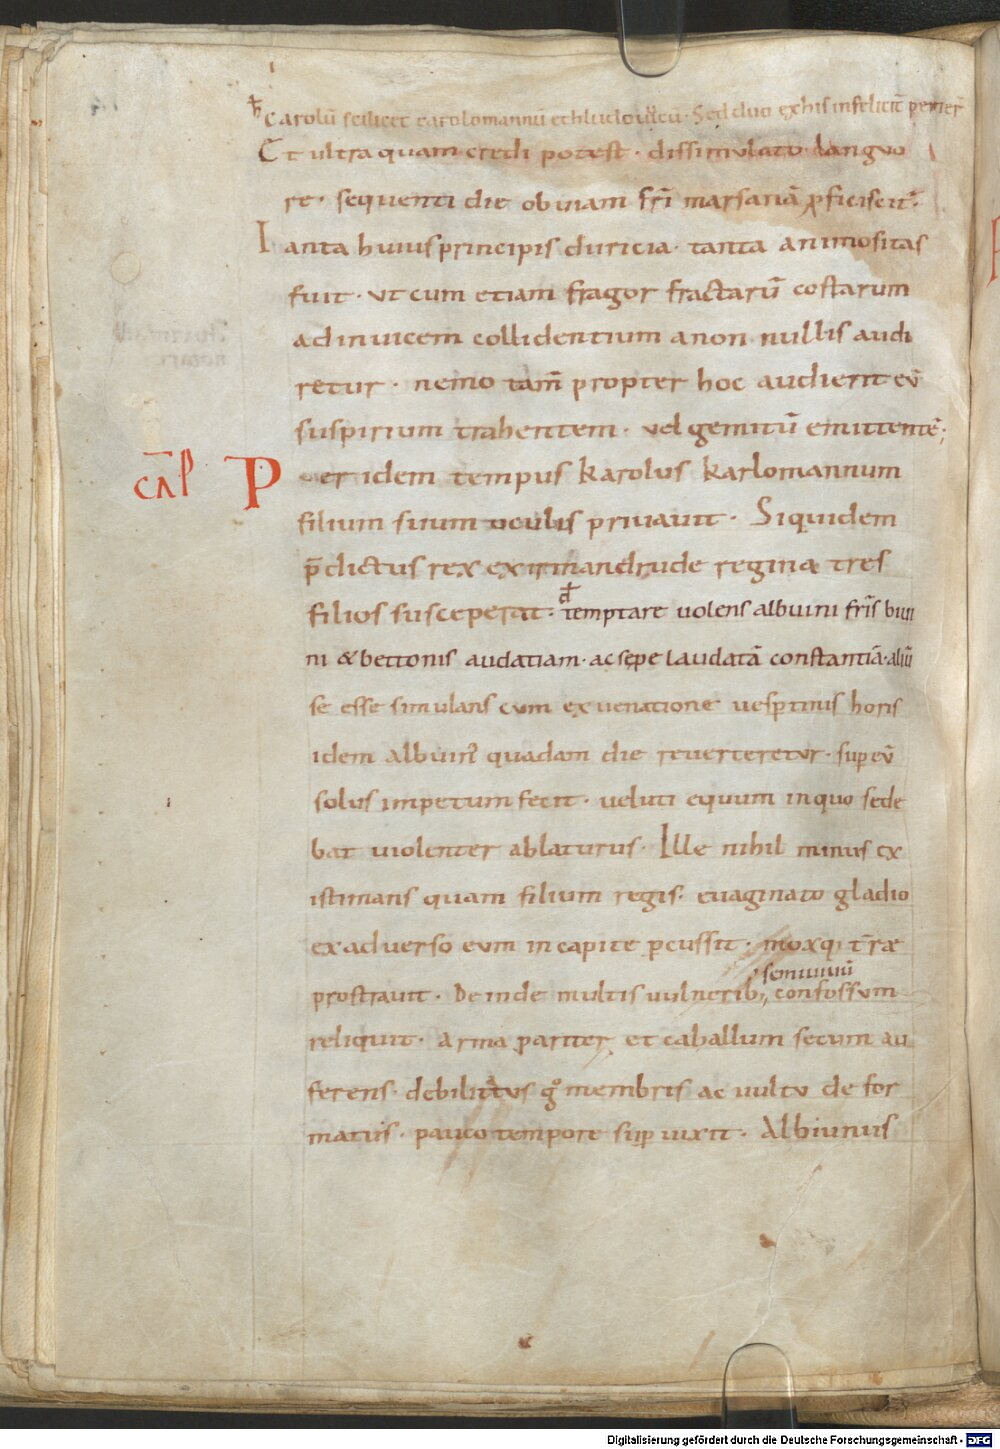 ħ Carolū scilicet carolomannū et hludouicū · Sed duo ex his infeliciť perier̄
Et ultra quam credi potest · dissimulato languo
re · sequenti die obuiam frī marsanā ꝓficisciť ·
Tanta huius principis duricia · tanta animositas
fuit · ut cum etiam fragor fractarū costarum
adinuicem collidentium a non nullis audi
retur · nemo tam̄ propter hoc audierit eū
suspirium trahentem · vel gemitū emittentē ;
CAP̄ Per idem tempus karolus karlomannum
filium suum oculis priuauit · Siquidem
p̄dictus rex ex irmandrude regina tres
filios susceperat · đ temptare uolens albuini fr̄is biui
ni & bettonis audatiam · ac sepe laudatā constantiā · aliū
se esse simulans cum ex uenatione uesp̱tinis horis
idem albuin' quadam die reuerteretur · sup eū
solus impetum fecit · ueluti equum in quo sede
bat uiolenter ablaturus · Ille nihil minus ex
istimans quam filium regis · euaginato gladio
ex aduerso eum in capite p̱cussit · moxq; t̄ræ
prostrauit · Deinde multis uulnerib; confossum
semiuiuū
reliquit · arma pariter et caballum secum au
ferens · debilitatus g° membris ac uultu de for
matus · pauco tempore sup̱uixit · Albiunus
Digitalisierung gefördert durch die Deutsche Forschungsgemeinschaft - DFG